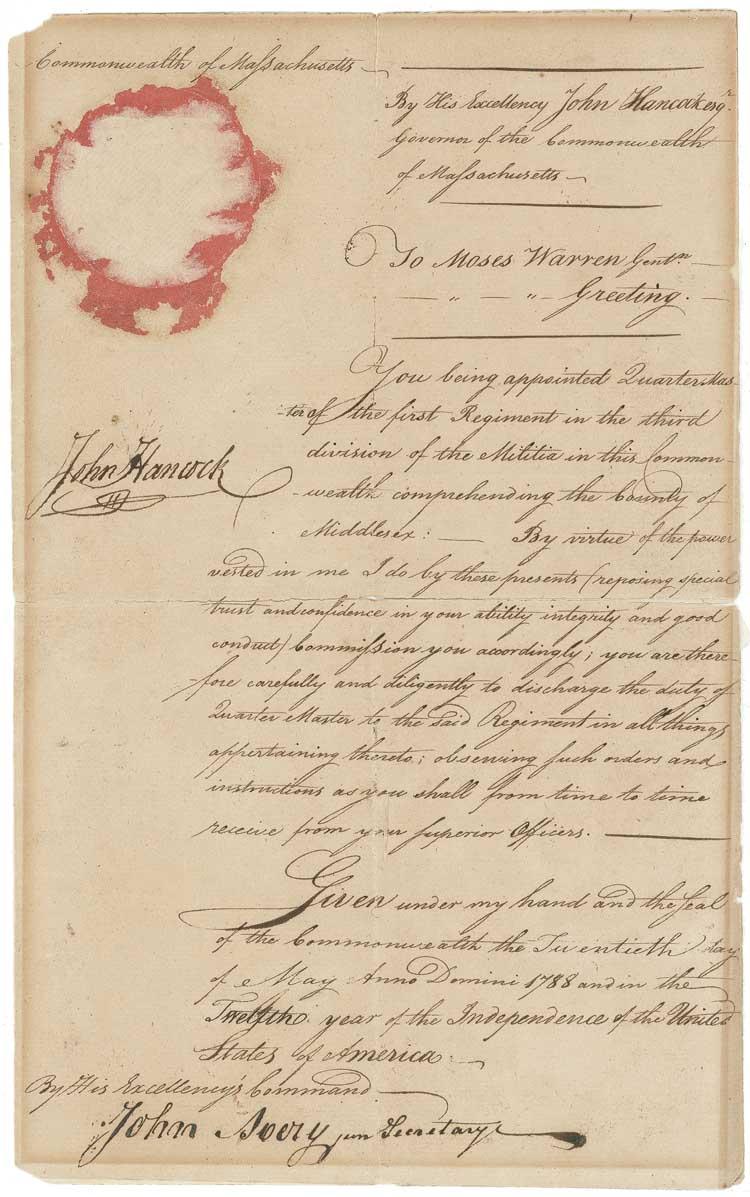 Commonwealth of Massachusetts
By His Excellency John Hancock esqr.
Governor of the Commonwealth
of Massachusetts
To Moses Warren Gentn
— " — " — Greeting.
You being appointed Quarter Mas-
-ter of the first Regiment in the third
division of the Militia in this Common-
-wealth comprehending the County of
Middlesex: — By virtue of the power
vested in me I do by these presents (reposing special
trust and confidence in your ability integrity and good
conduct) Commission you accordingly; you are there-
-fore carefully and diligently to discharge the duty of
Quarter Master to the said Regiment in all things
appertaining thereto; observing such orders and
instructions as you shall from time to time
receive from your superior Officers.
John Hancock
Given under my hand and the seal
of the Commonwealth the Twentieth day
of May Anno Domini 1788 and in the
Twelfth year of the Independence of the United
States of America.
By His Excellency's Command
John Avery jun Secretary